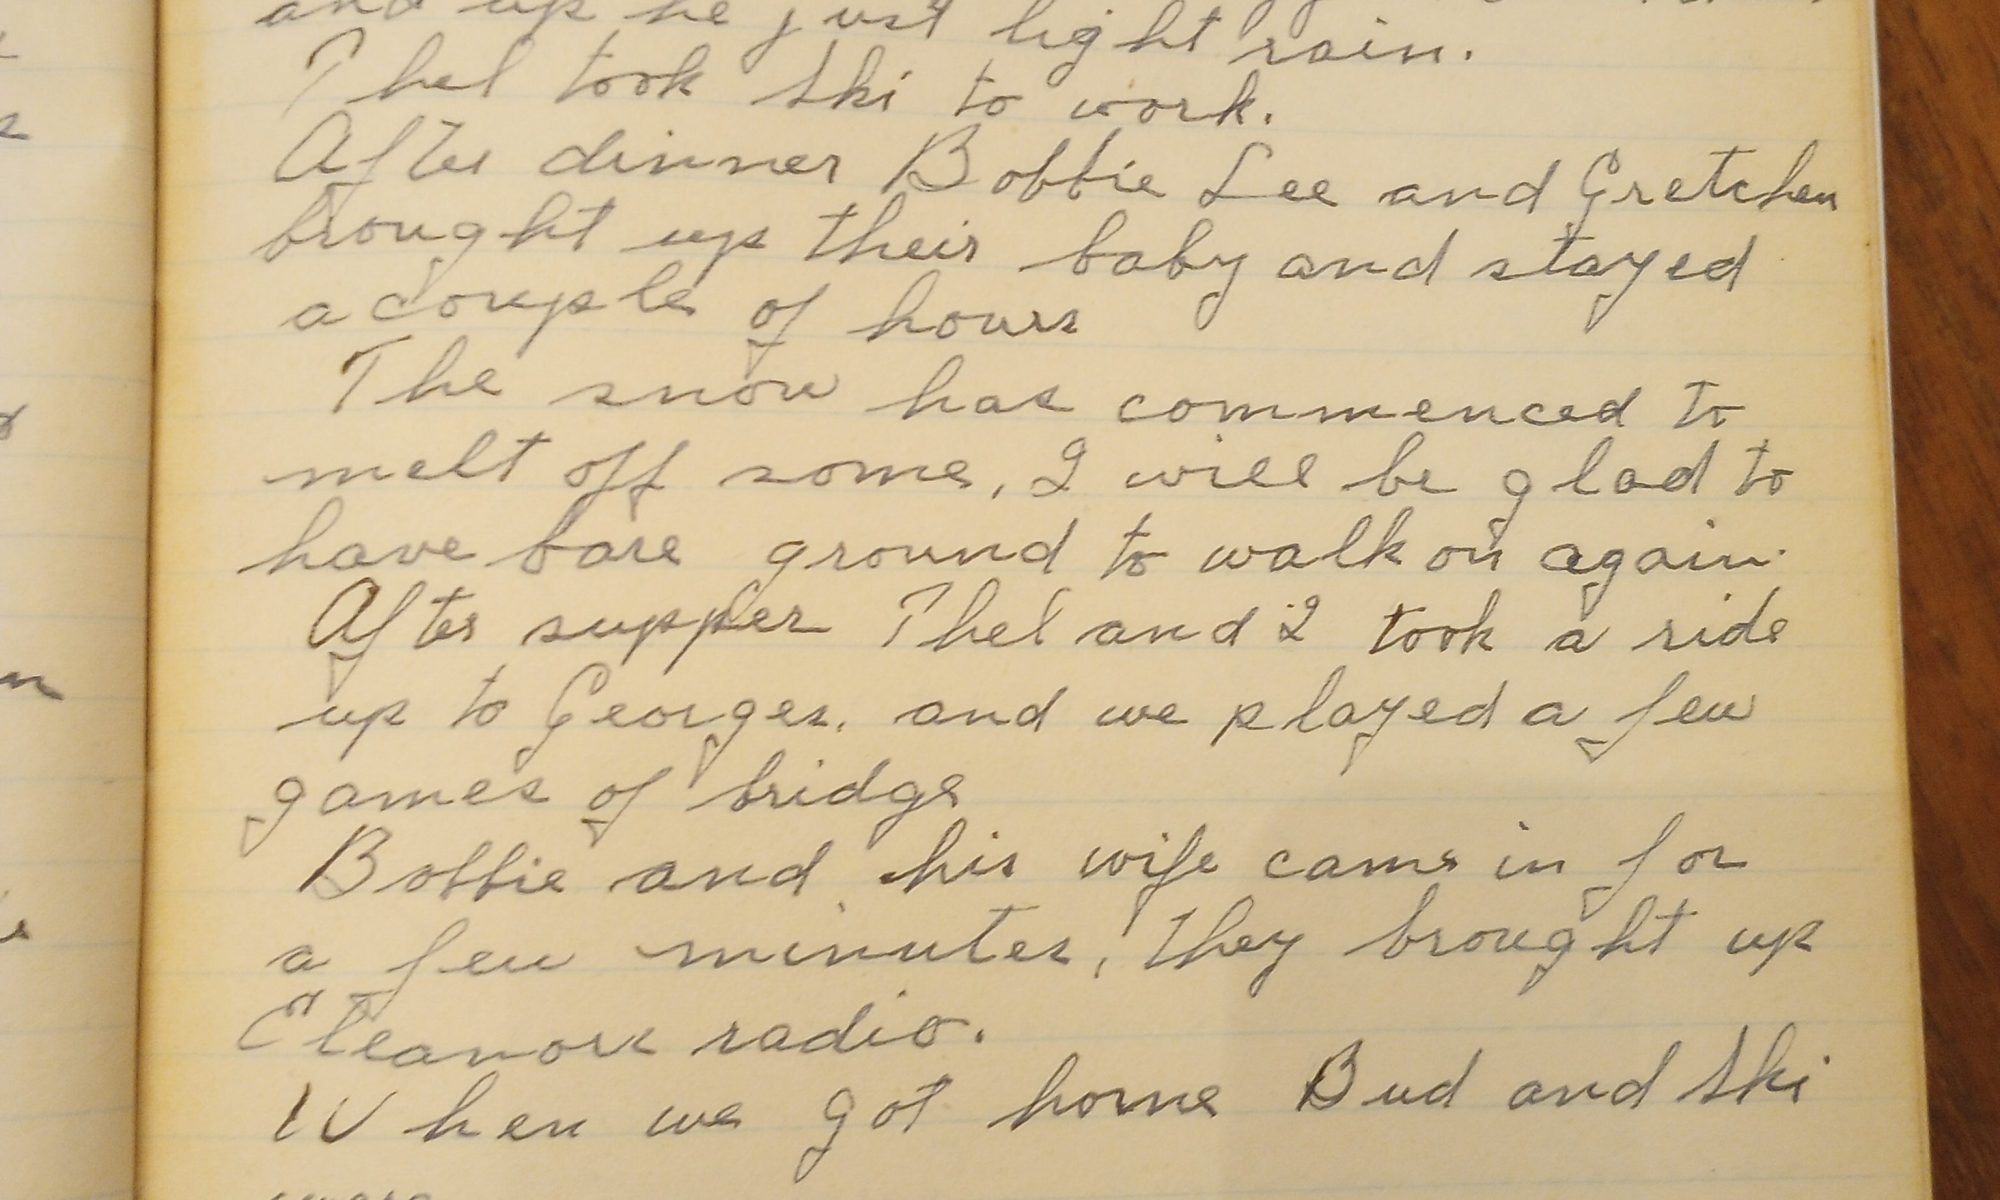 and up he just light rain.
Thel took Ski to work.
After dinner Bobbie Lee and Gretchen
brought up their baby and stayed
a couple of hours
The snow has commenced to
melt off some, I will be glad to
have bare ground to walk on again.
After supper Thel and I took a ride
up to Georges. and we played a few
games of bridge
Bobbie and his wife came in for
a few minutes, They brought up
Eleanors radio.
When we got home Bud and Ski
were